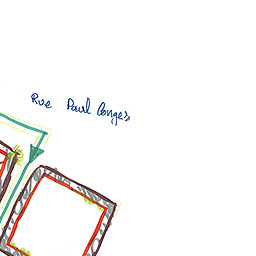 Rue Paul Conges